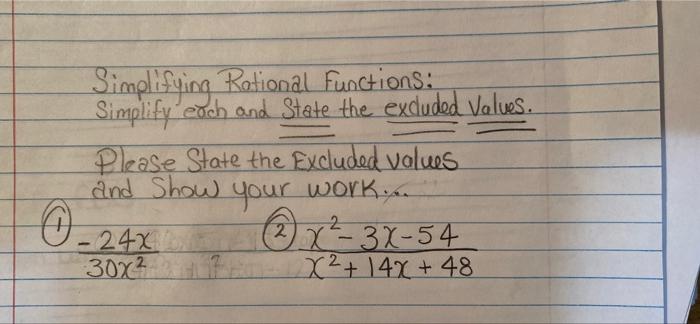 Simplifying Rational Functions:
Simplify each and State the excluded Values.
Please State the Excluded values
and Show your work...
① -24x/30x² ② x²-3x-54/x²+14x+48